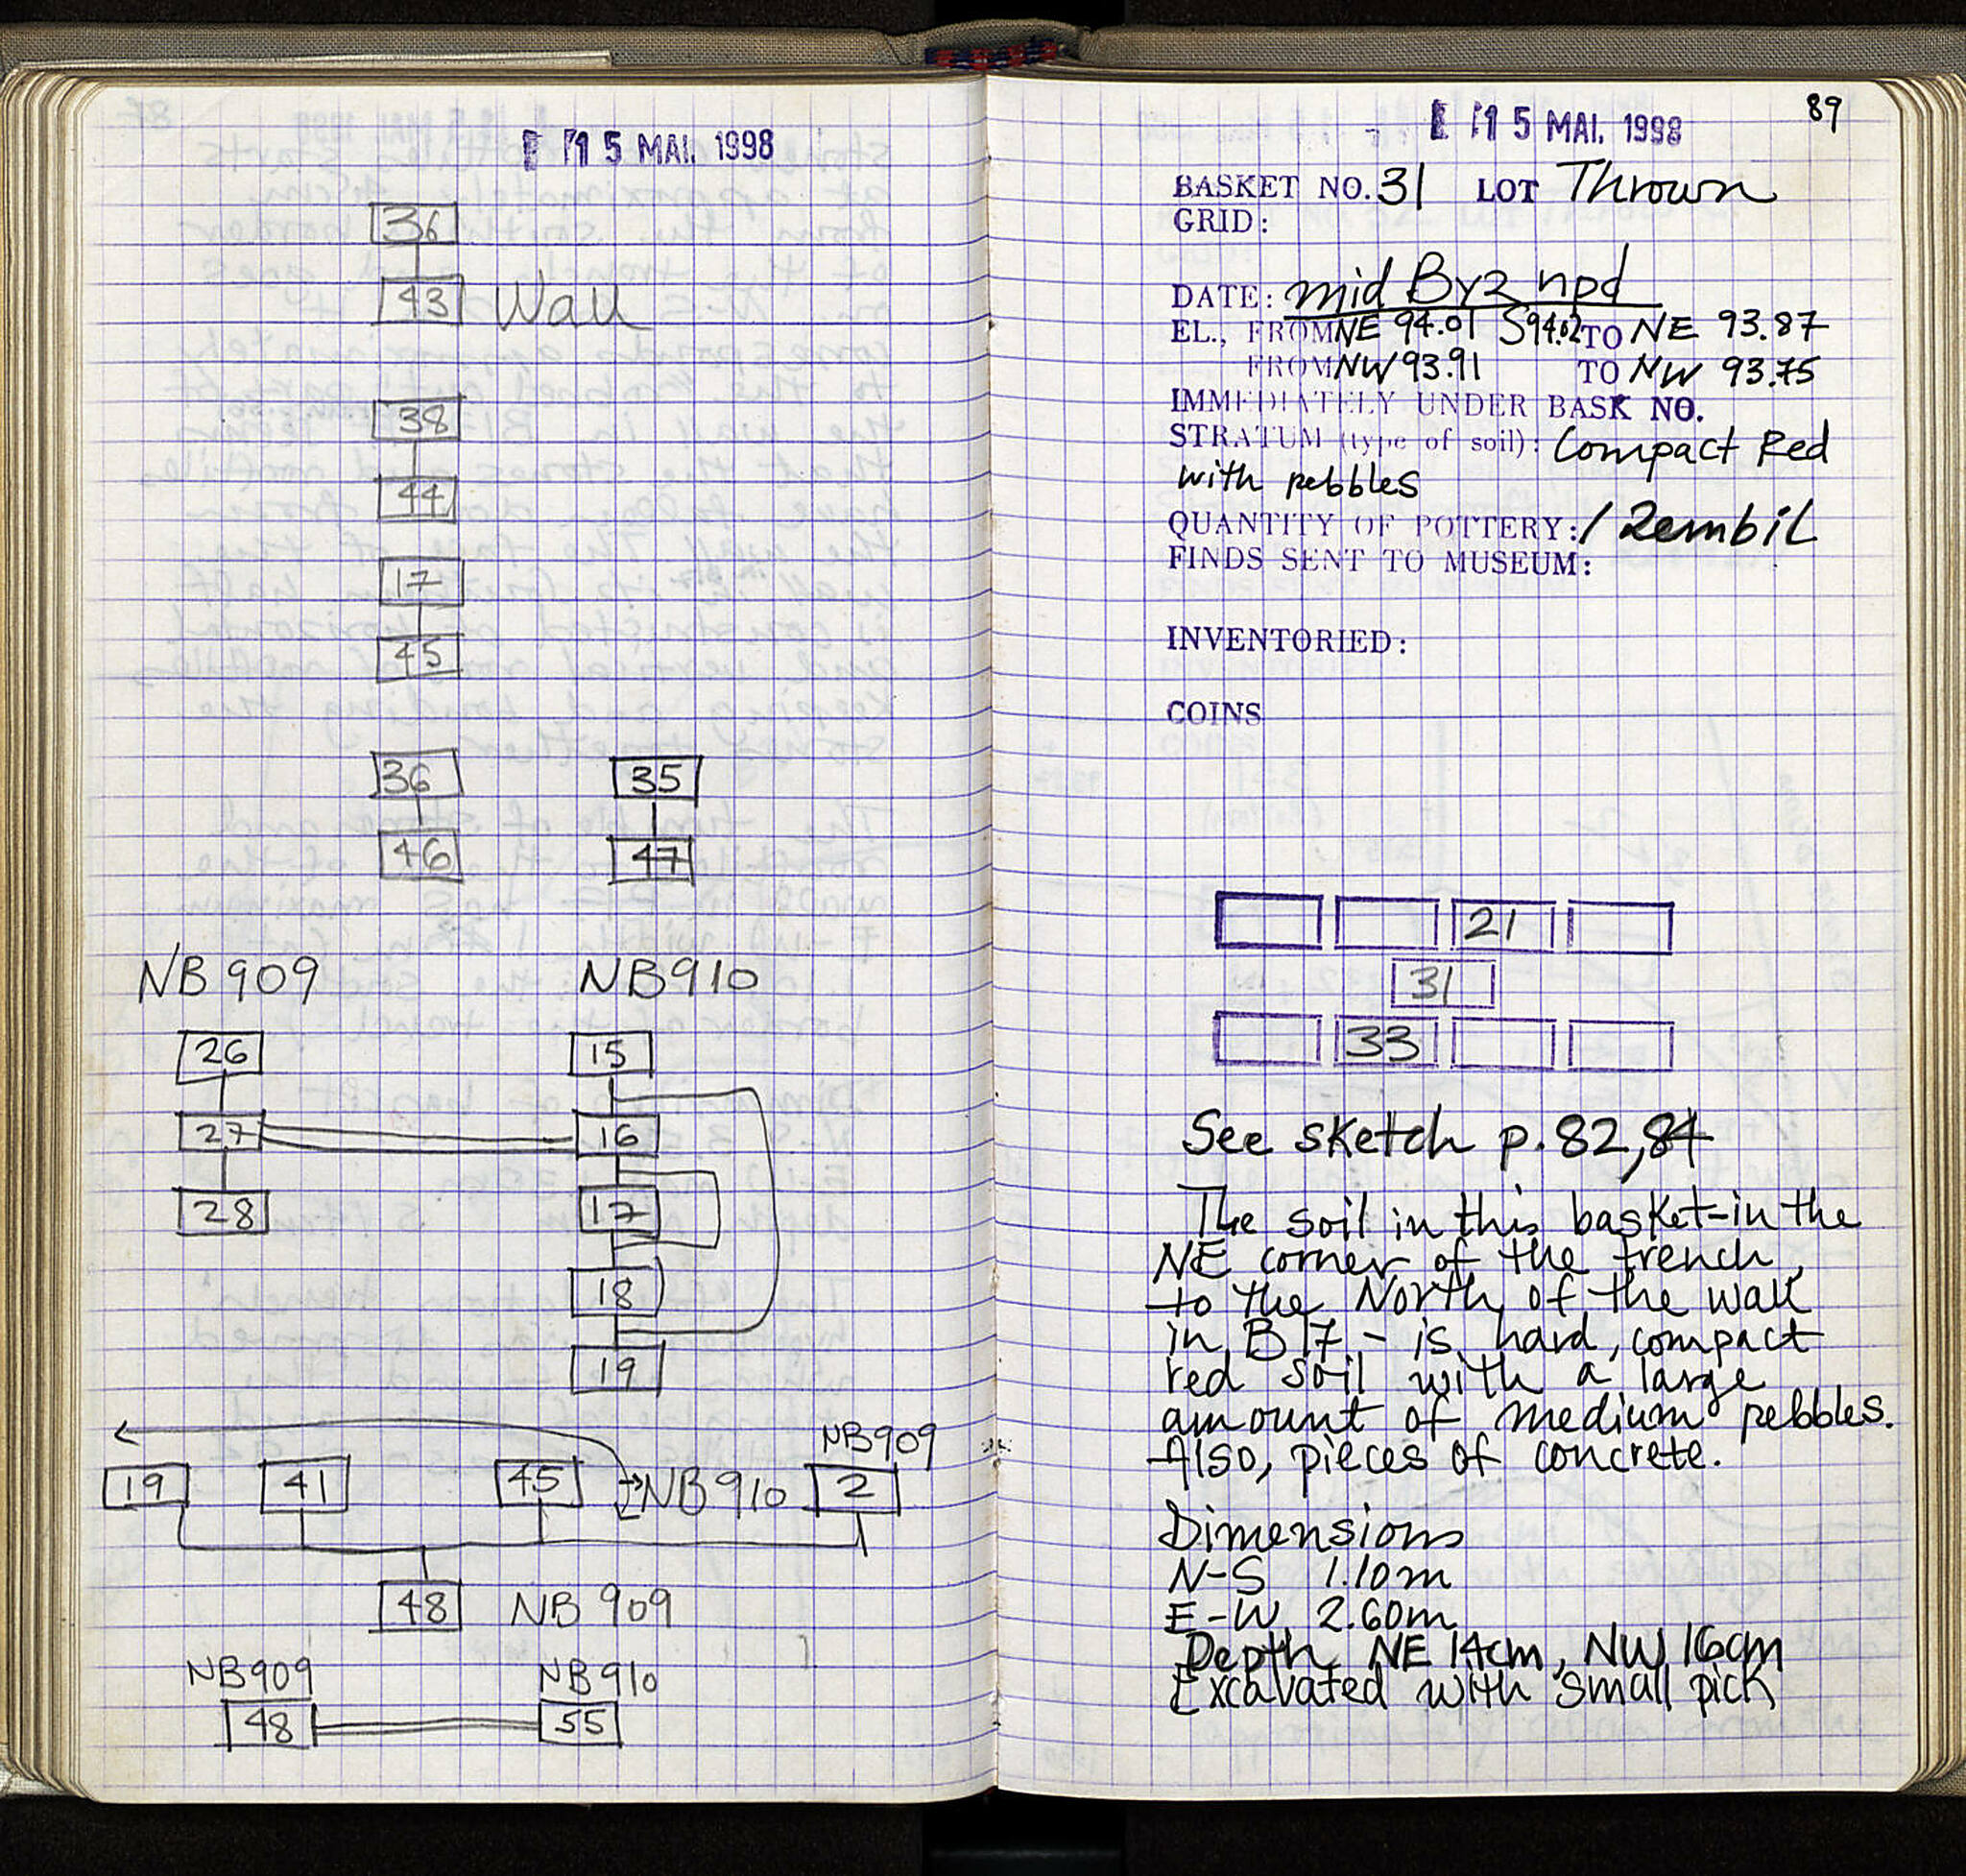 15 MAI. 1998
36
43 Wall
38
44
17
45
36 35
46 47
NB 909 NB 910
26 15
27 16
28 17
18
19
NB909
19 41 45 NB 910 2
48 NB 909
NB909 NB910
48 55
89
15 MAI. 1998
BASKET NO. 31 LOT Thrown
GRID:
DATE: mid Byz npd
EL., FROM NE 94.01 S94.02 TO NE 93.87
FROM NW 93.91 TO NW 93.75
IMMEDIATELY UNDER BASK NO.
STRATUM (type of soil): Compact Red
with pebbles
QUANTITY OF POTTERY: 1 Zembil
FINDS SENT TO MUSEUM:
INVENTORIED:
COINS
21
31
33
See sketch p. 82, 84
The soil in this basket-in the
NE corner of the trench,
to the North of the wall
in B 17 - is hard, compact
red soil with a large
amount of medium pebbles.
Also, pieces of concrete.
Dimensions
N-S 1.10m
E-W 2.60m
Depth NE 14cm, NW 16cm
Excavated with small pick